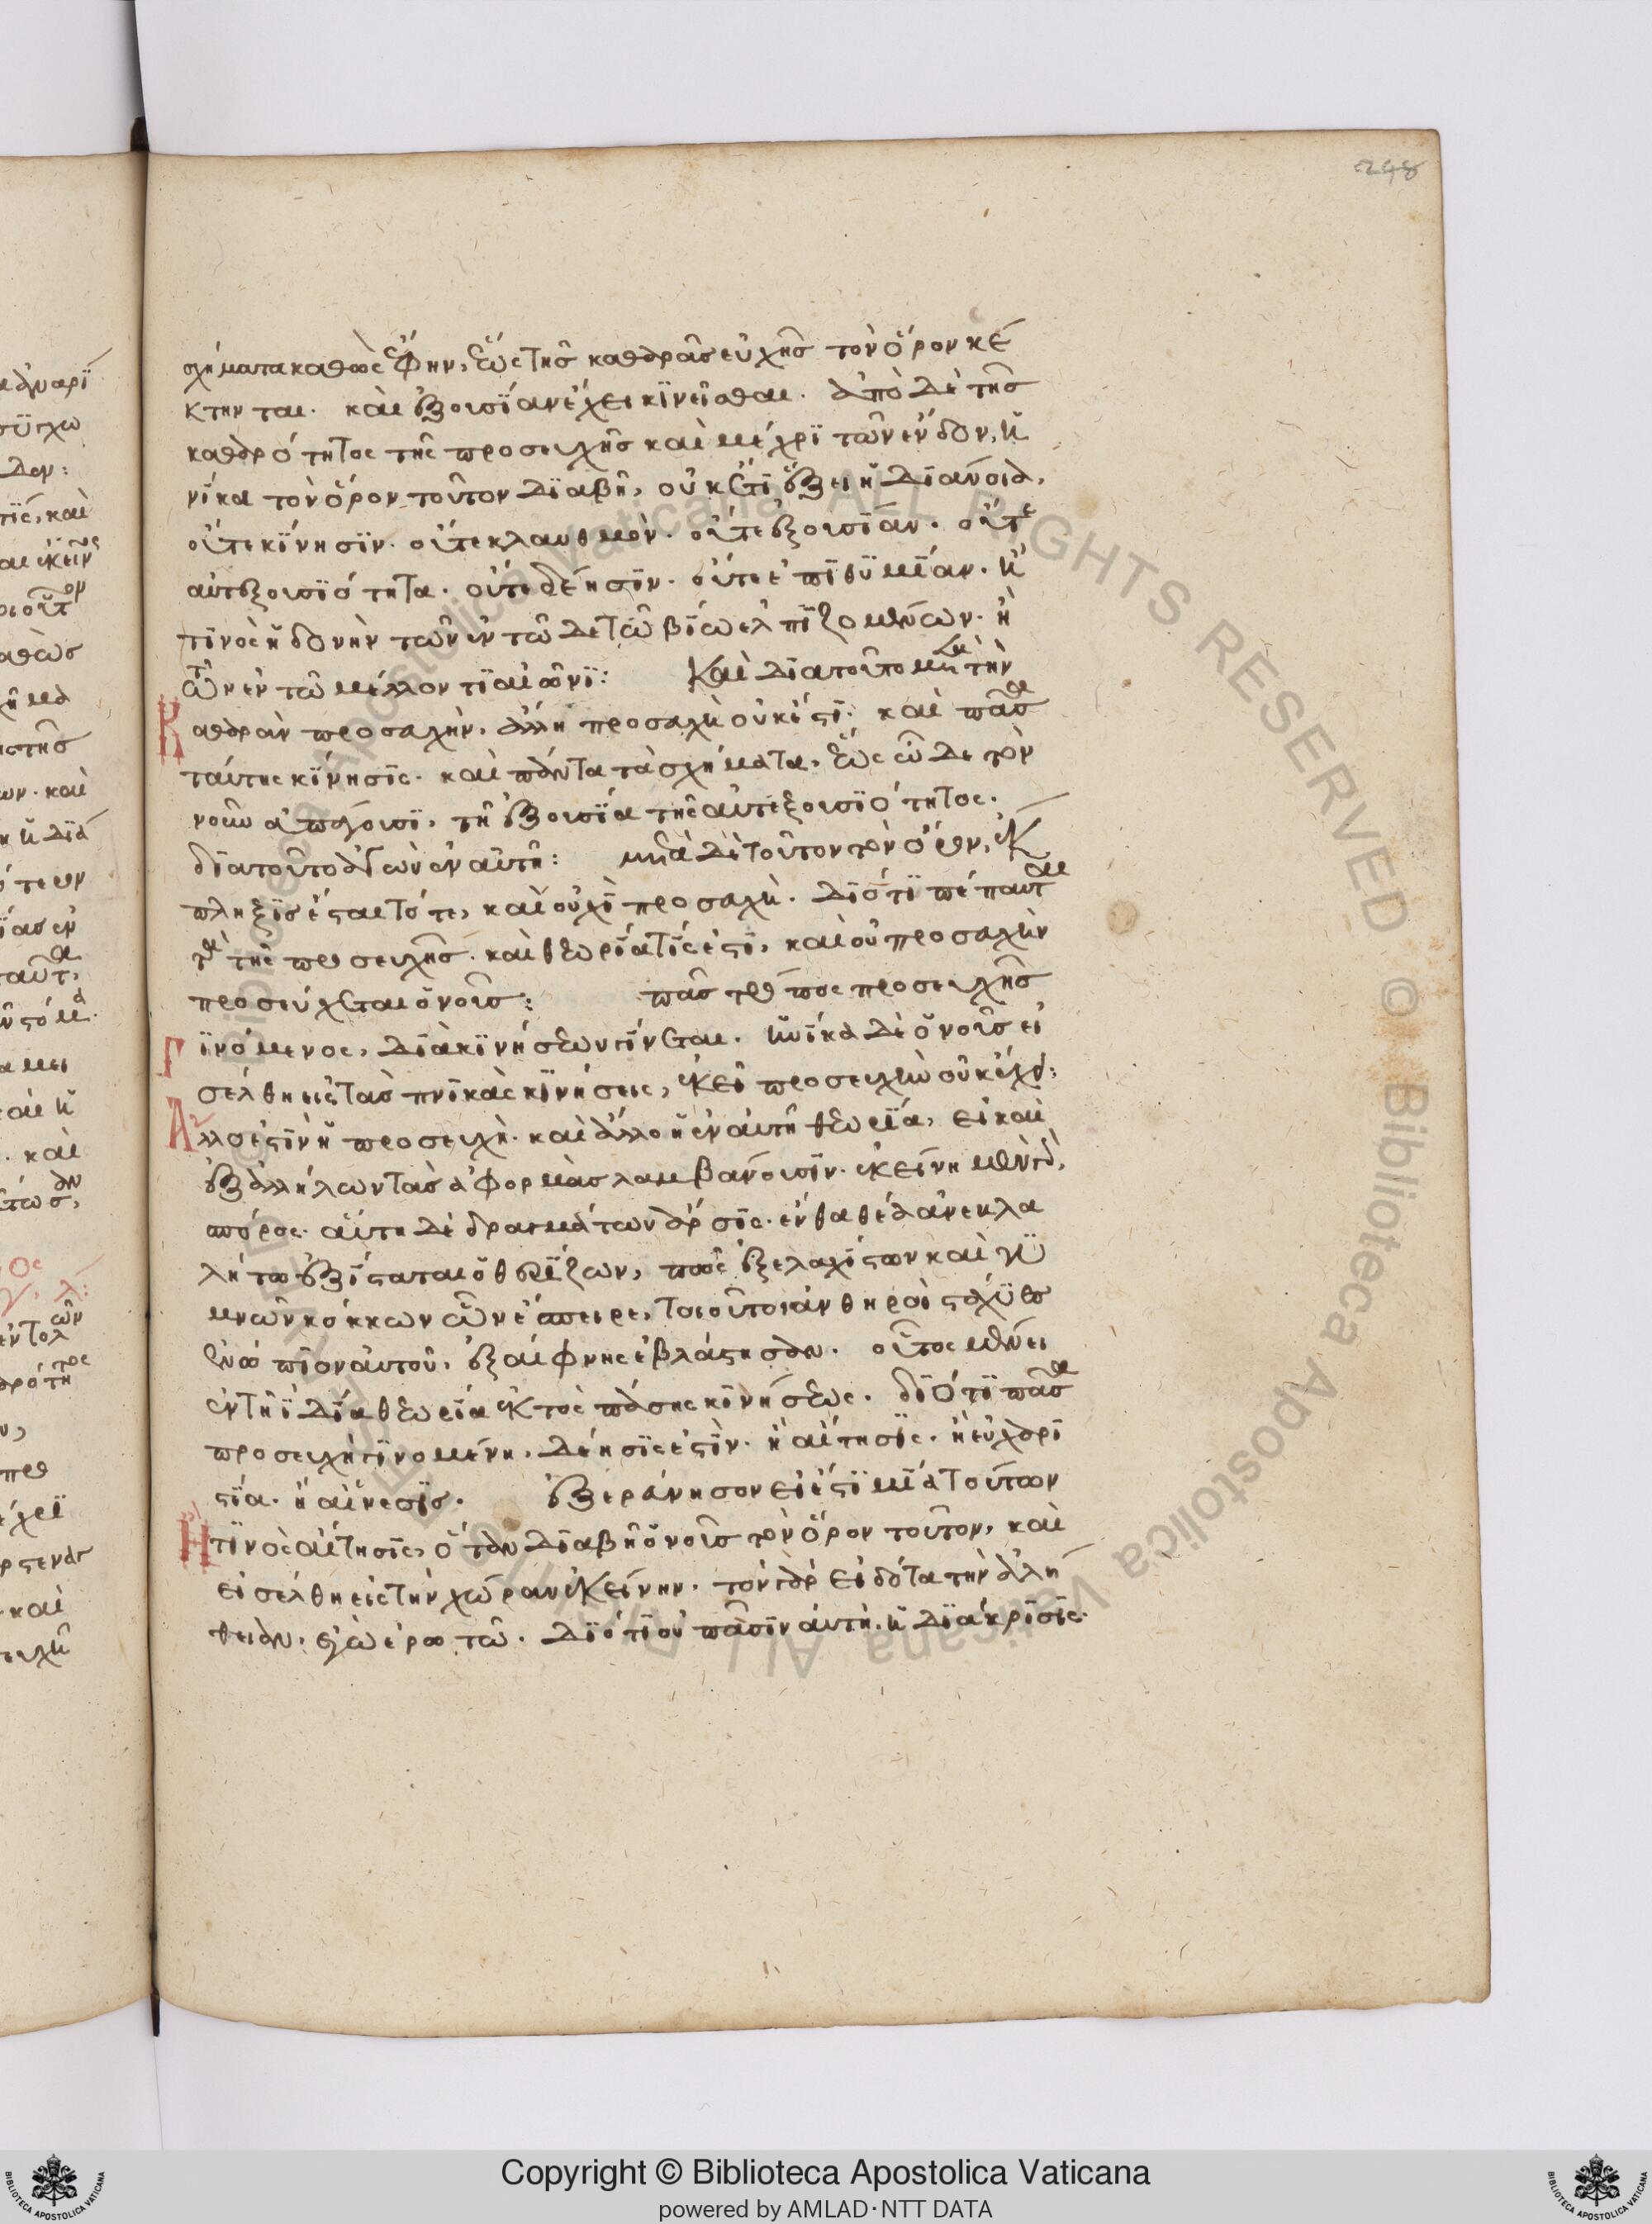 248
σχήματα καθὼς ἔφην, ἕως τῆς καθαρᾶς εὐχῆς τὸν ὅρον κέ
κτηνται. καὶ ἐξουσίαν ἔχει κινεῖσθαι. ἀπὸ δὲ τῆς
καθαρότητος τῆς προσευχῆς καὶ μέχρι τῶν ἔνδον, ἡ
νίκα τὸν ὅρον τοῦτον διαβῆ, οὐκ ἔτι ἕξει ἡ διάνοια,
οὔτε κίνησιν. οὔτε κλαυθμὸν. οὔτε ἐξουσίαν. οὔτε
αὐτεξουσιότητα. οὔτε δέησιν. οὔτε ἐπιθυμίαν. ἤ
τινος ἡδονὴν τῶν ἐν τῶδε τῶ βίω ἐλπιζομένων. ἢ
τῶν ἐν τῶ μέλλοντι αἰῶνι: Καὶ διατοῦτο μετὰ τὴν
Καθαρὰν προσευχὴν, ἄλλη προσευχὴ οὐκ ἔστι. καὶ πᾶσα
ταύτης κίνησις. καὶ πάντα τὰ σχήματα, ἕως ὧδε τὸν
νοῦν ἀπάγουσι, τῆ ἐξουσία τῆς αὐτεξουσιότητος.
διατοῦτο ἀγὼν ἐν αὐτῆ: μετὰ δὲ τοῦτον τὸν ὅρον, ἔκ
πληξις ἔσται τότε, καὶ οὐχὶ προσευχὴ. διότι πέπαυται
τὰ τῆς προσευχῆς. καὶ θεωρία τίς ἐστι, καὶ οὐ προσευχὴν
προσεύχεται ὁ νοῦς: πᾶς τρόπος προσευχῆς
Γινόμενος, διὰ κινήσεων γίνεται. ἡνίκα δὲ ὁ νοῦς εἰ
σέλθη εἰς τὰς πνικὰς κινήσεις, ἐκεῖ προσευχὴν οὐκ ἔχει:
Ἄλλο ἐστὶν ἡ προσευχὴ. καὶ ἄλλο ἡ ἐν αὐτῆ θεωρία, εἰ καὶ
ἐξ ἀλλήλων τὰς ἀφορμὰς λαμβάνουσιν. ἐκείνη μὲν γὰρ,
σπόρος. αὕτη δὲ δραγμάτων ἄρσις. ἔνθα θέα ἀνεκλα
λήτω ἐξίσταται ὁ θερίζων, πῶς ἐξ ἐλαχίστων καὶ γυ
μνῶν κόκκων ὧν ἔσπειρε, τοιοῦτοι ἀνθηροὶ στάχυες
ἐνώπιον αὐτοῦ, ἐξαίφνης ἐβλάστησαν. οὗτος μένει
ἐν τῆ ἰδία θεωρία ἐκτὸς πάσης κινήσεως. διότι πᾶσα
προσευχὴ γινομένη, δέησις ἐστὶν. ἢ αἴτησις. ἢ εὐχαρι
στία. ἢ αἴνεσις. ἐξερεύνησον εἰ ἔστι μία τούτων
Ἤ τινος αἴτησις, ὅταν διαβῆ ὁ νοῦς τὸν ὅρον τοῦτον, καὶ
εἰσέλθη εἰς τὴν χώραν ἐκείνην. τὸν γὰρ εἰδότα τὴν ἀλή
θειαν. ἐγὼ ἐρωτῶ. διότι οὐ πᾶσιν αὐτὴ, ἡ διάκρισις.
Copyright © Biblioteca Apostolica Vaticana
powered by AMLAD·NTT DATA